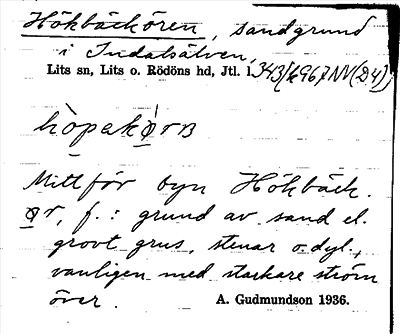 Hökbäckören, sandgrund
i Indalsälven,
Lits sn, Lits o. Rödöns hd, Jtl. l.
Mitt för byn Hökbäck.
ør, f. : grund av sand el.
grovt grus, stenar o. dyl.,
vanligen med starkare ström
över.
A. Gudmundson 1936.